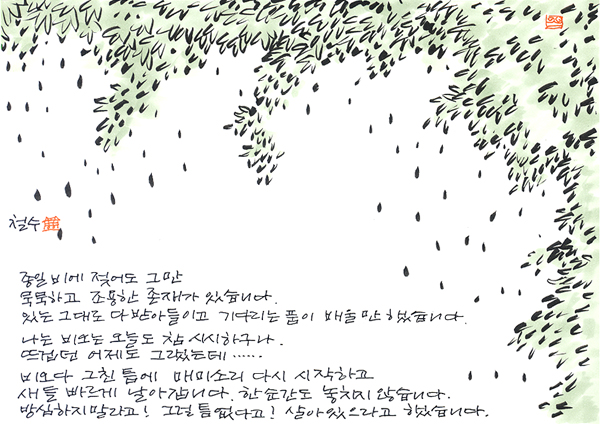 철수
종일 비에 젖어도 그만
묵묵하고 조용한 존재가 있습니다.
있는 그대로 다 받아들이고 기다리는 품이 배울 만 했습니다.
나는 비오는 오늘도 참 시시하구나.
뜨겁던 어제도 그랬는데……
비오다 그친 틈에 매미소리 다시 시작하고
새들 빠르게 날아갑니다. 한 순간도 놓치지 않습니다.
방심하지말라고! 그럴 틈 없다고! 살아있으라고 했습니다.